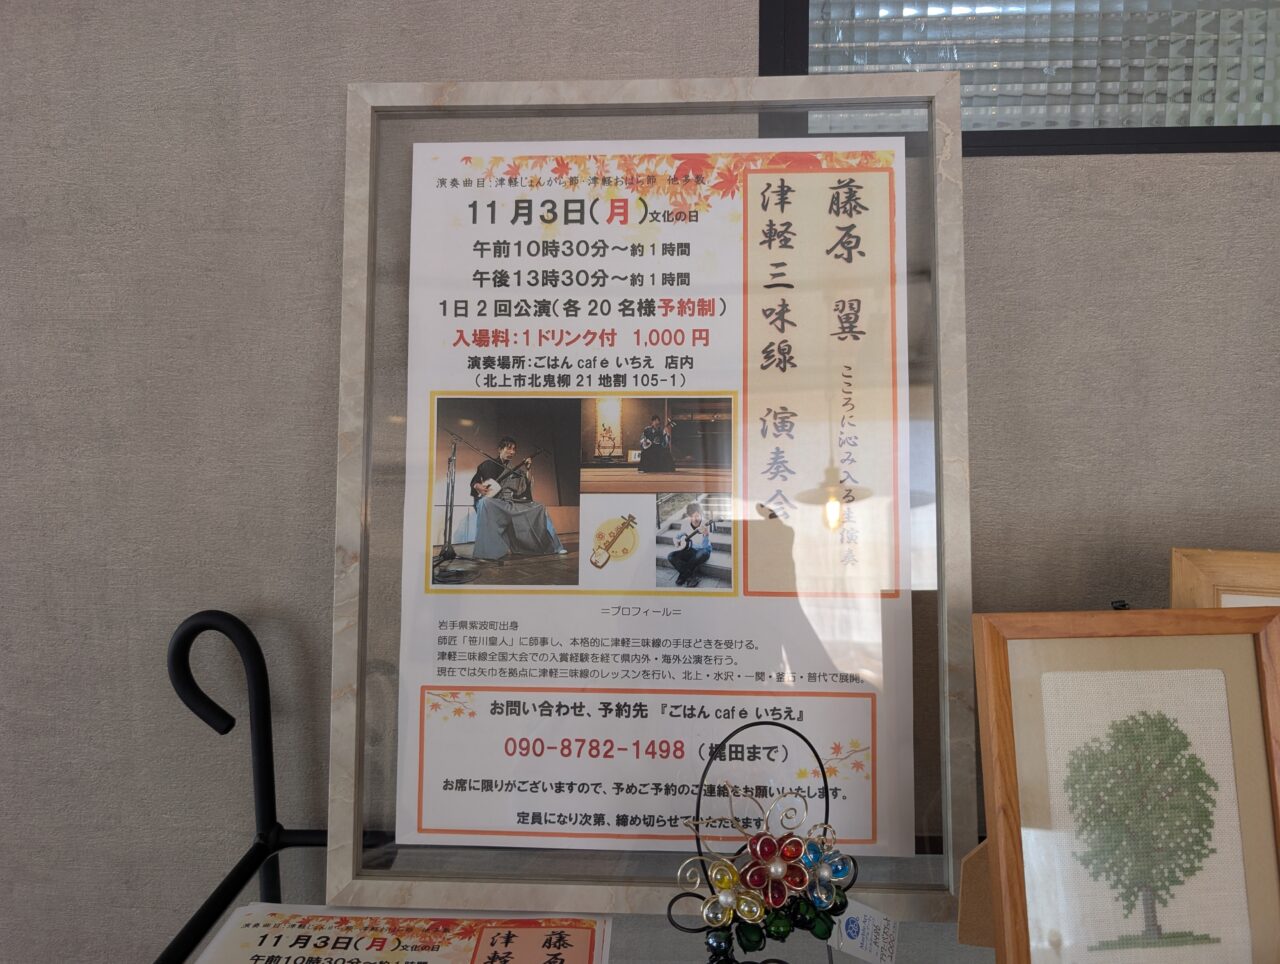 演奏曲目：津軽じょんがら節・津軽おはら節　他多数
11月3日(月)文化の日
午前10時30分～約1時間
午後13時30分～約1時間
1日2回公演(各20名様予約制)
入場料：1ドリンク付　1,000円
演奏場所：ごはん café いちえ 店内
（北上市北鬼柳 21 地割 105-1）
藤原 翼 こころに沁み入る生演奏
津軽三味線 演奏会
＝プロフィール＝
岩手県紫波町出身
師匠「笹川皇人」に師事し、本格的に津軽三味線の手ほどきを受ける。
津軽三味線全国大会での入賞経験を経て県内外・海外公演を行う。
現在では矢巾を拠点に津軽三味線のレッスンを行い、北上・水沢・一関・釜石・普代で展開。
お問い合わせ、予約先 『ごはん café いちえ』
090-8782-1498（梶田まで）
お席に限りがございますので、予めご予約のご連絡をお願いいたします。
定員になり次第、締め切らせていただきます
演奏曲目：津軽じょんがら節・津軽おはら節　他多数
11月3日(月)文化の日
午前10時30分～約1時間
藤原
津軽